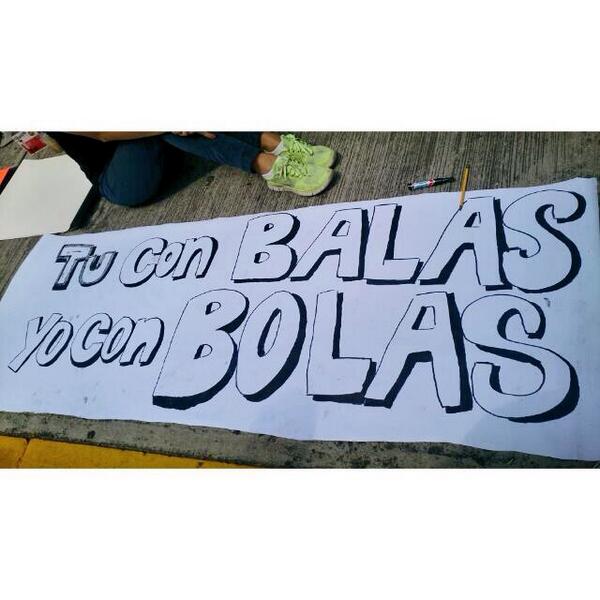 Tu con BALAS
Yo con BOLAS